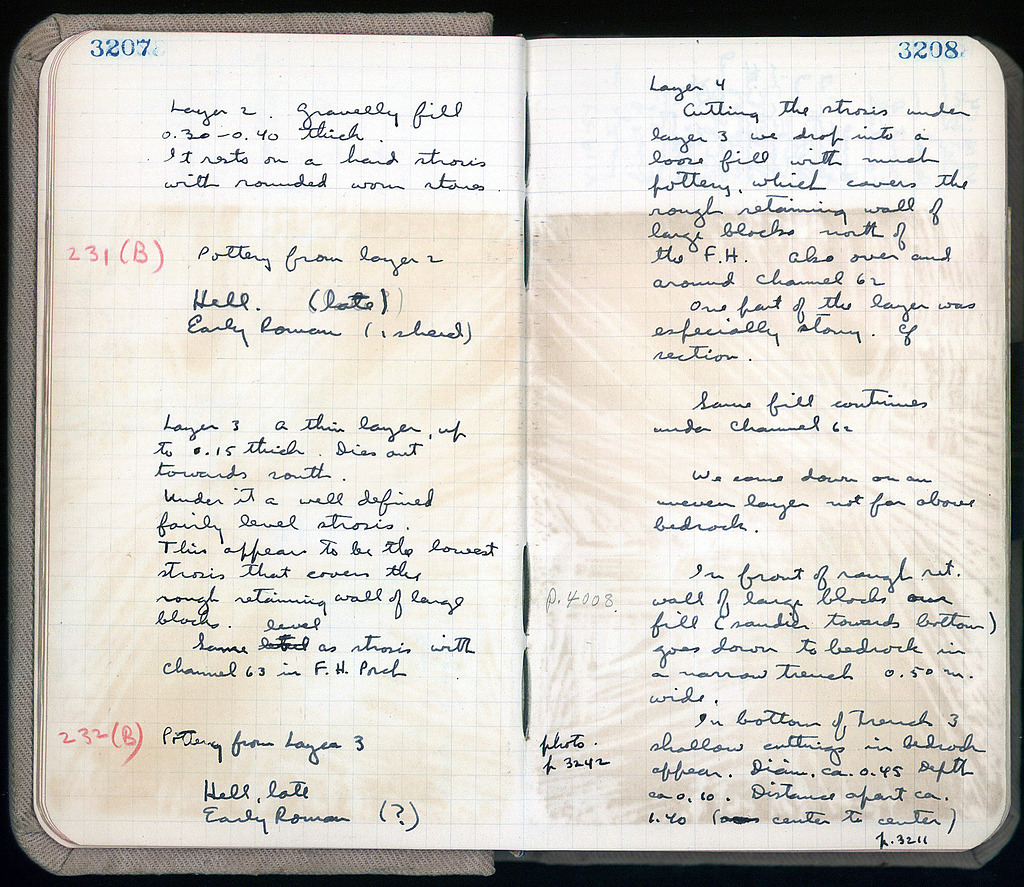 3207
Layer 2. Gravelly fill
0.30–0.40 thick.
It rests on a hard strosis
with rounded worn stones.
231(B) Pottery from layer 2
Hell. (late)
Early Roman (1 sherd)
Layer 3 a thin layer, up
to 0.15 thick. Dies out
towards south.
Under it a well defined
fairly level strosis.
This appears to be the lowest
strosis that covers the
rough retaining wall of large
blocks.
level
Same as strosis with
Channel 63 in F.H. Porch
232(B) Pottery from Layer 3
Hell, late
Early Roman (?)
3208
Layer 4
Cutting the strosis under
layer 3 we drop into a
loose fill with much
pottery, which covers the
rough retaining wall of
large blocks north of
the F.H. Also over and
around Channel 62
One part of the layer was
especially stony. Cf
section.
Same fill continues
under Channel 62
We come down on an
uneven layer not far above
bedrock.
In front of rough ret.
p.4008. wall of large blocks our
fill (sandier towards bottom)
goes down to bedrock in
a narrow trench 0.50 m.
wide.
In bottom of Trench 3
photo. shallow cuttings in bedrock
p 3242 appear. Diam. ca. 0.45 Depth
ca 0.10. Distance apart ca.
1.40 (center to center)
p.3211